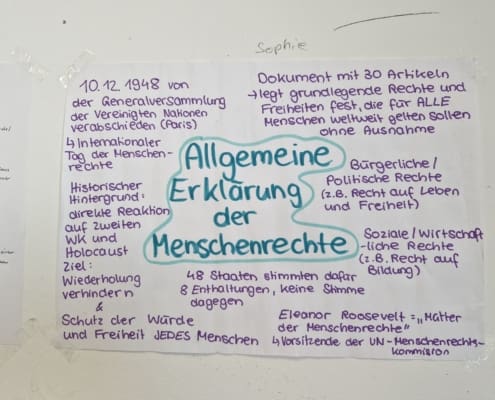 Sophie
10.12.1948 von
der Generalversammlung
der Vereinigten Nationen
verabschieden (Paris)
↳ Internationaler
Tag der Menschen-
rechte
Historischer
Hintergrund:
direkte Reaktion
auf zweiten
WK und
Holocaust
Ziel:
Wiederholung
verhindern
&
Schutz der Würde
und Freiheit JEDES Menschen
Allgemeine
Erklärung
der
Menschenrechte
48 Staaten stimmten dafür
8 Enthaltungen, keine Stimme
dagegen
Dokument mit 30 Artikeln
→ legt grundlegende Rechte und
Freiheiten fest, die für ALLE
Menschen weltweit gelten sollen
ohne Ausnahme
Bürgerliche /
Politische Rechte
(z.B. Recht auf Leben
und Freiheit)
Soziale/Wirtschaft
-liche Rechte
(z.B. Recht auf
Bildung)
Eleanor Roosevelt = „Mutter
der Menschenrechte"
↳ Vorsitzende der UN-Menschenrechts-
kommission